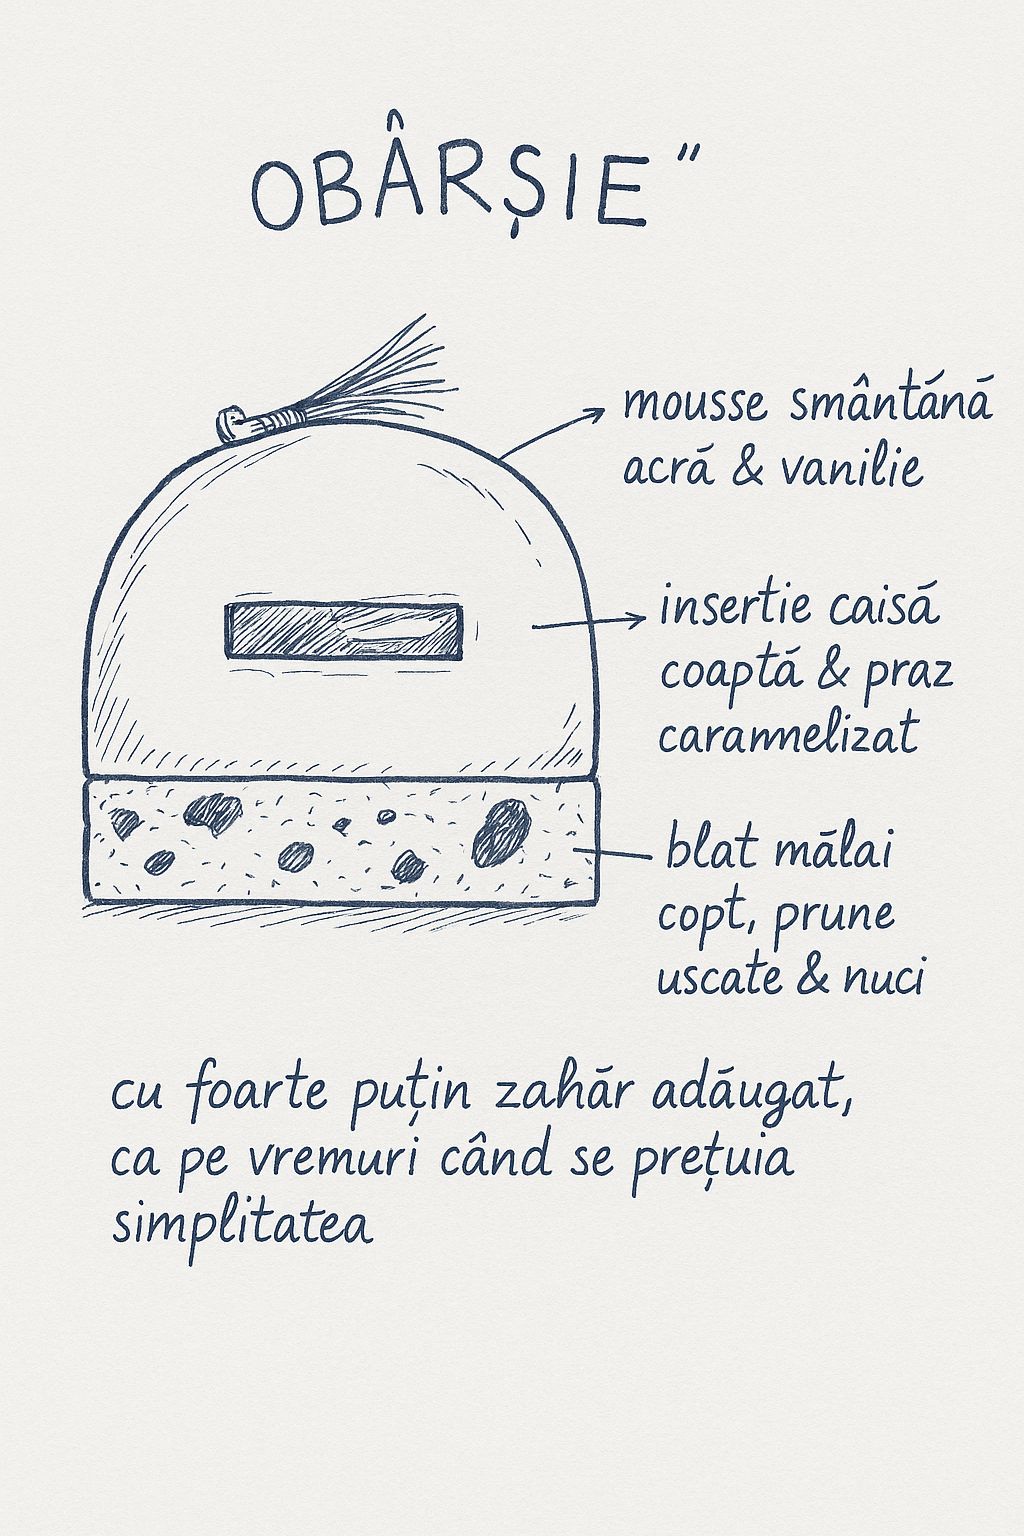 OBÂRȘIE”
mousse smântánā
acrá & vanilie
insertie caisá
coaptá & praz
carammelizat
blat mālai
copt, prune
uscate & nuci
cu foarte puțin zahār adāugat,
ca pe vremuri când se prețuia
simplitatea